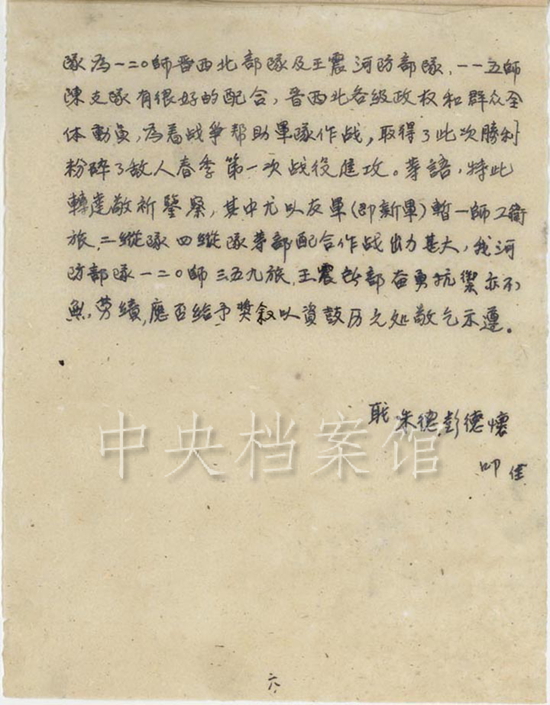 隊為一二〇師晋西北部隊及王震河防部隊,一一五師
陳支隊有很好的配合,晋西北各級政权和群众全
体動員,為着战争帮助軍隊作战,取得了此次勝利
粉碎了敌人春季第一次战役進攻。等語,特此
轉達敬祈鑒察,其中尤以友軍(即新軍)暫一師工衛
旅、二縱隊四縱隊等部配合作战出力甚大,我河
防部隊一二〇師三五九旅、王震所部奋勇抗禦亦不
勞績,應否給予獎叙以資鼓历之处敬乞示遵。
職 朱德彭德懷
叩 佳
中央档案馆
六